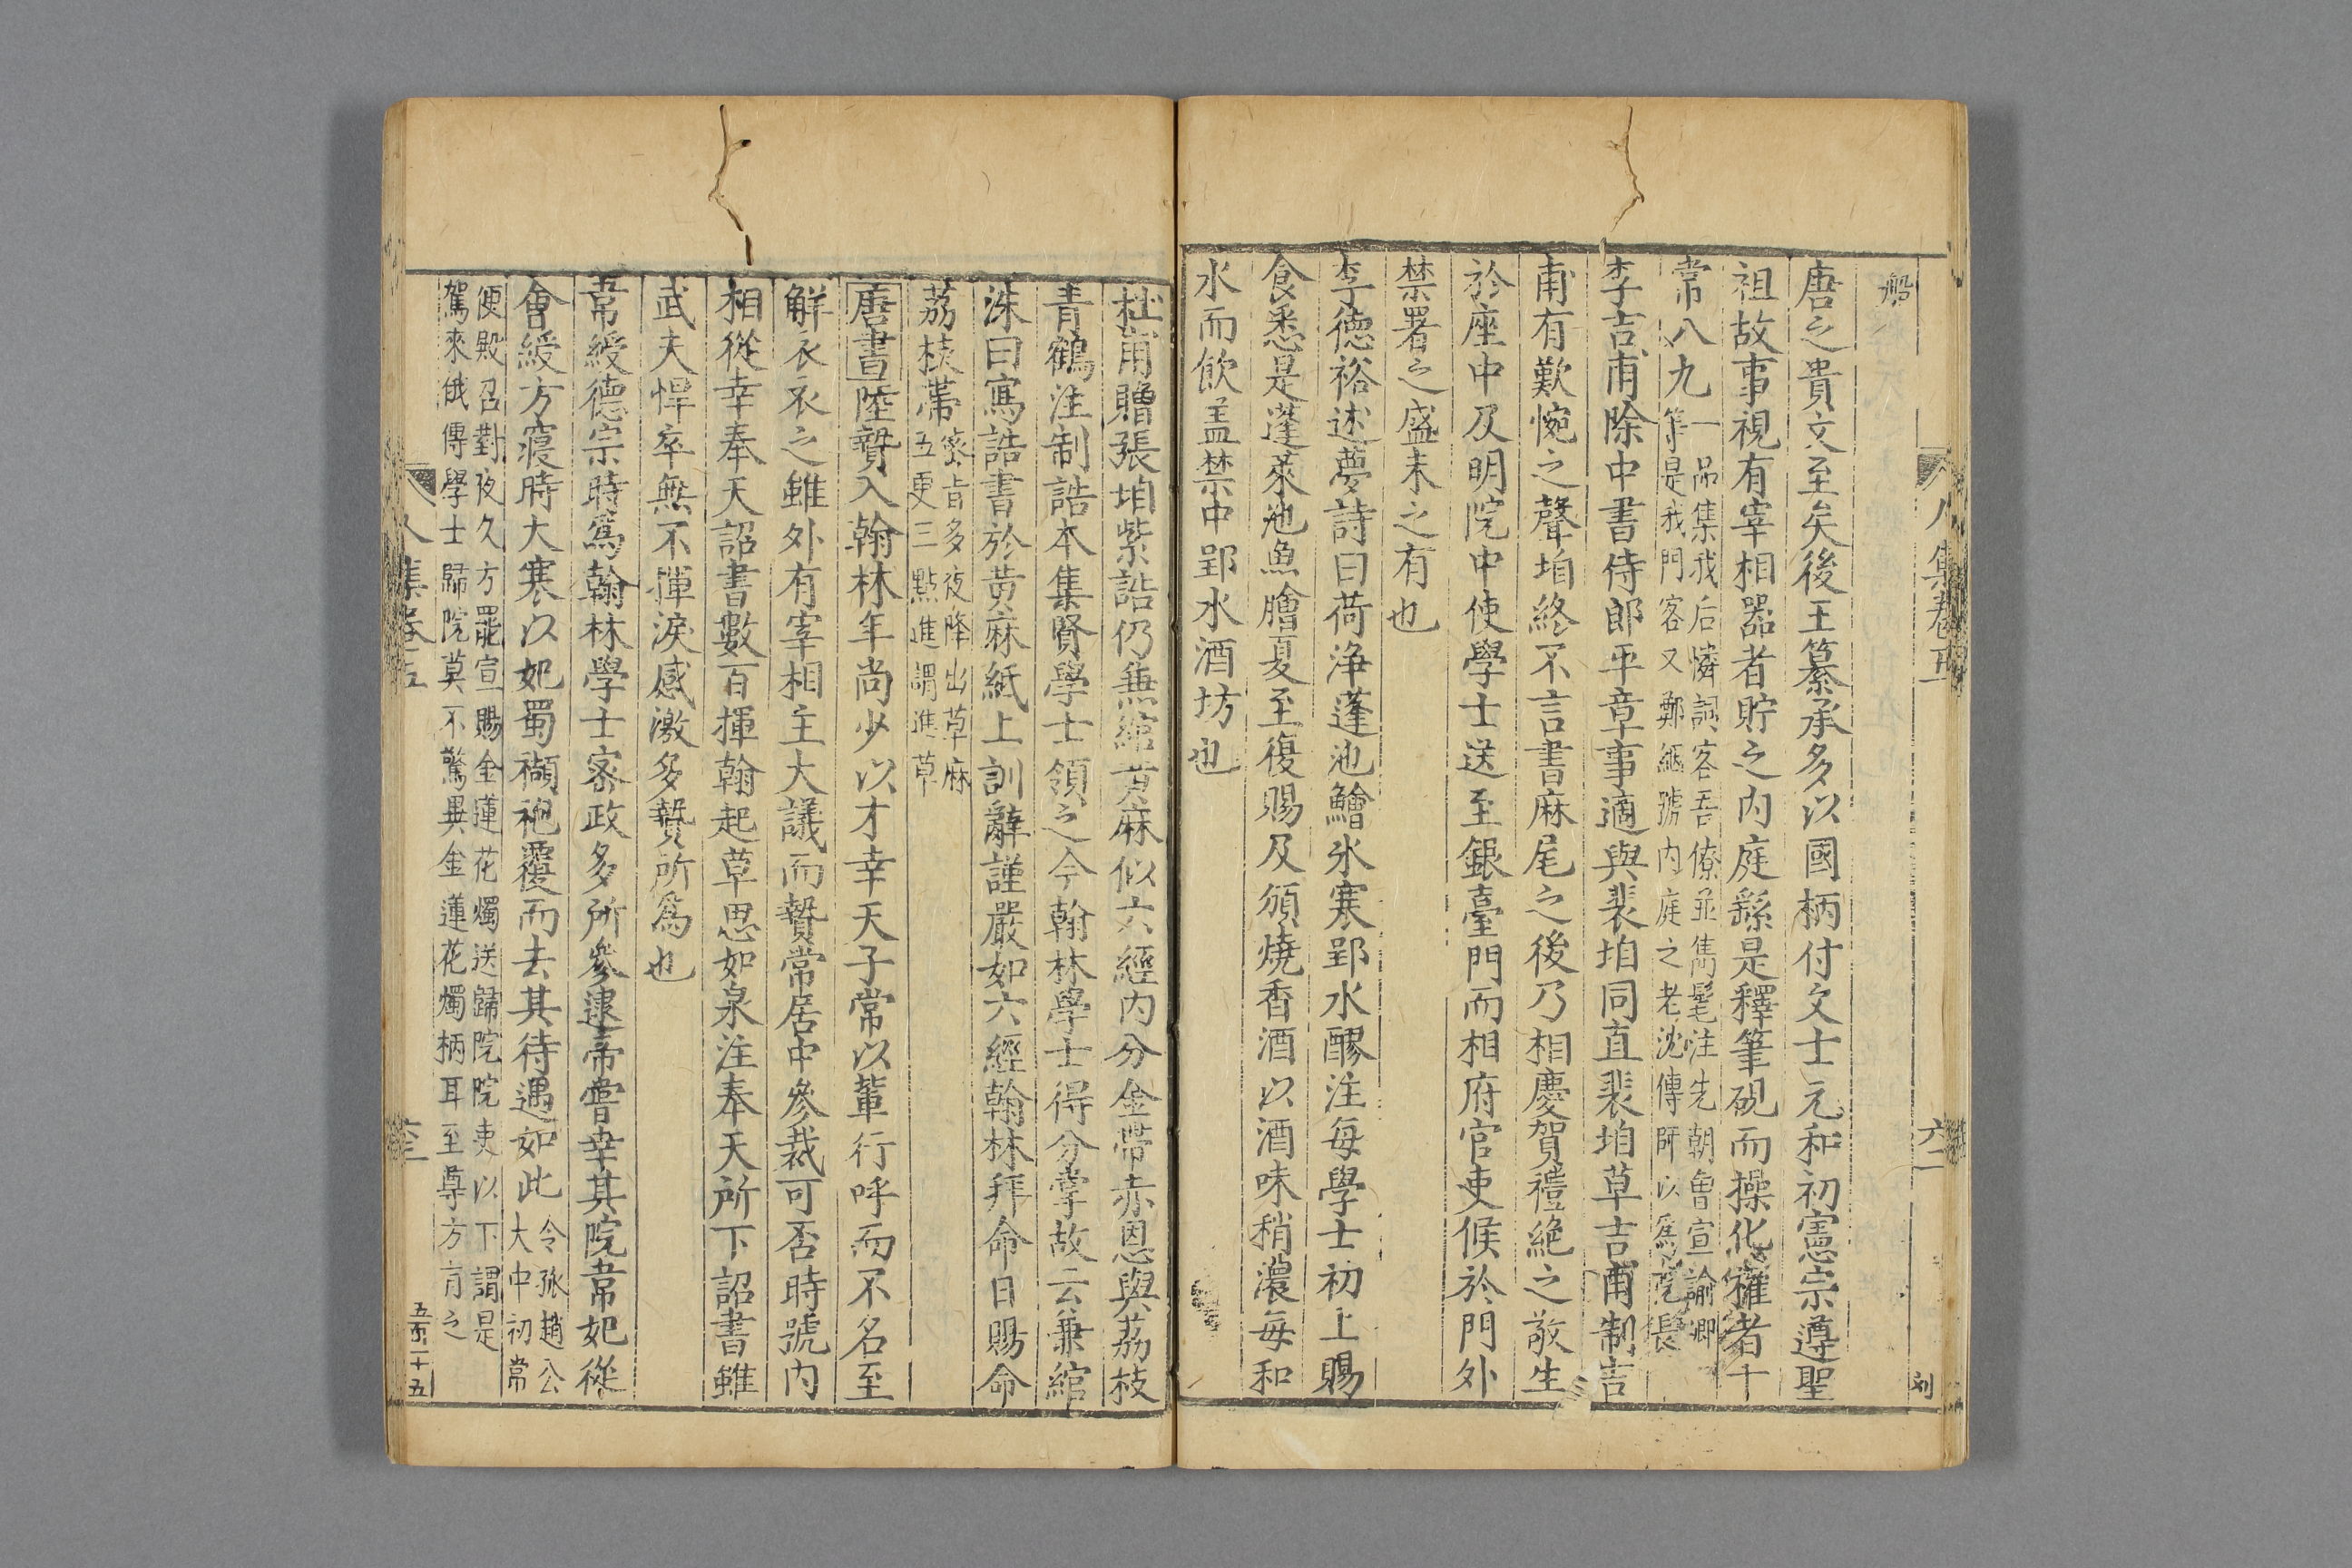 八集卷五
六二
刘
船
唐之貴文至矣後王纂承多以國柄付文士元和初憲宗遵聖
祖故事視有宰相器者貯之内庭繇是釋筆硯而操化權者十
常八九一品集我后憐詞客吾僚並雋髦注先朝魯宣諭卿
等是我門客又鄭絪號内庭之老沈傳師以爲院長
李吉甫除中書侍郎平章事適與裴垍同直裴垍草吉甫制吉
甫有歎惋之聲垍終不言書麻尾之後乃相慶賀禮絶之敬生
於座中及明院中使學士送至銀臺門而相府官吏候於門外
禁署之盛未之有也
李德裕述夢詩曰荷浄蓬池鱠氷寒郢水醪注每學士初上賜
食悉是蓬萊池魚膾夏至復賜及頒燒香酒以酒味稍濃每和
水而飲盖禁中郢水酒坊也
杜甫贈張垍紫誥仍兼綰黄麻似六經内分金帶赤恩與荔枝
青鶴注制誥本集賢學士領之今翰林學士得分掌故云兼綰
洙曰寫誥書於黄麻紙上訓辭謹嚴如六經翰林拜命日賜命
荔枝帶密旨多夜降出草麻
五更三點進謂進草
唐書陸贄入翰林年尚少以才幸天子常以輩行呼而不名至
解衣衣之雖外有宰相主大議而贄常居中參裁可否時號内
相從幸奉天詔書數百揮翰起草思如泉注奉天所下詔書雖
武夫悍卒無不揮淚感激多贄所爲也
韋綬德宗時爲翰林學士密政多所參逮帝嘗幸其院韋妃從
會綬方寢時大寒以妃蜀襭袍覆而去其待遇如此令狐趙公
大中初常
便殿召對夜久方罷宣賜金蓮花燭送歸院院吏以下謂是
駕來俄傳學士歸院莫不驚異金蓮花燭柄耳至尊方有之
八集卷五